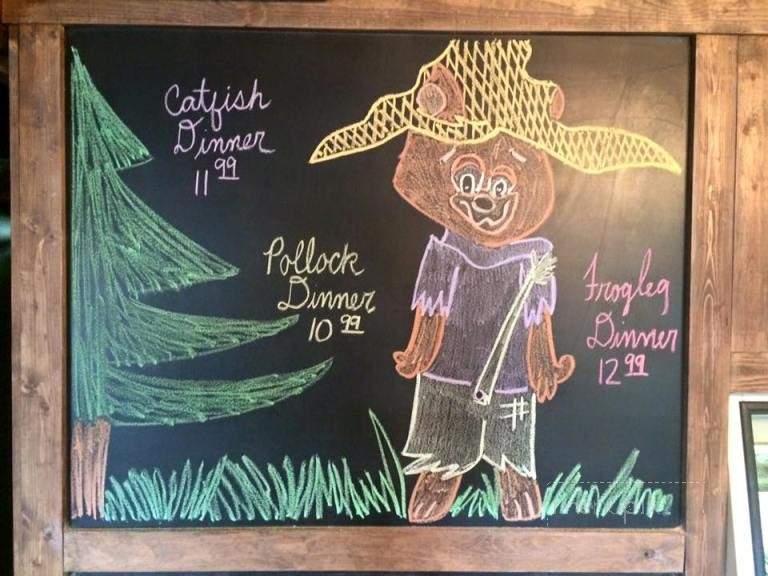 Catfish
Dinner
11 99
Pollock
Dinner
10 99
Frogleg
Dinner
12 99